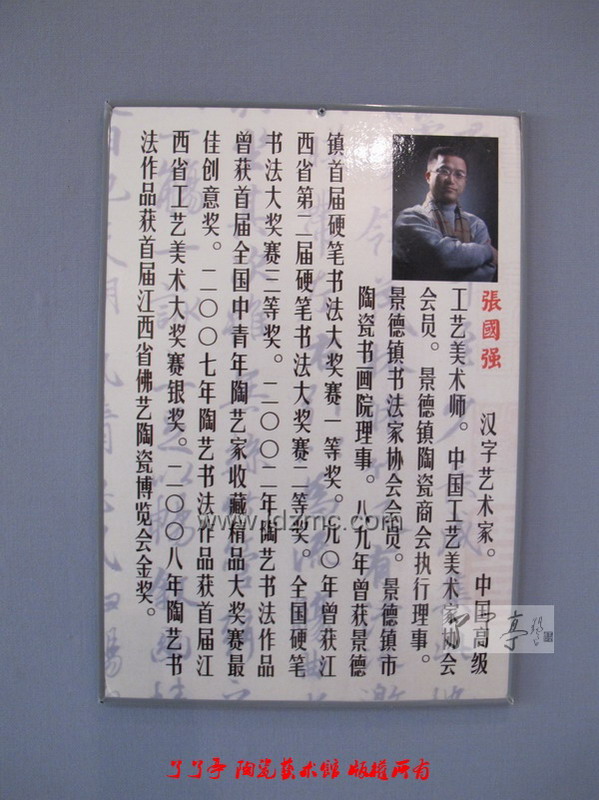 張國强 汉字艺术家。中国高级
工艺美术师。中国工艺美术家协会
会员。景德镇陶瓷商会执行理事。
景德镇书法家协会会员。景德镇市
陶瓷书画院理事。八九年曾获景德
镇首届硬笔书法大奖赛一等奖。九〇年曾获江
西省第二届硬笔书法大奖赛二等奖。全国硬笔
书法大奖赛三等奖。二〇〇二年陶艺书法作品
曾获首届全国中青年陶艺家收藏精品大奖赛最
佳创意奖。二〇〇七年陶艺书法作品获首届江
西省工艺美术大奖赛银奖。二〇〇八年陶艺书
法作品获首届江西省佛艺陶瓷博览会金奖。
www.jdzmc.com
陶瓷艺术馆 版权所有